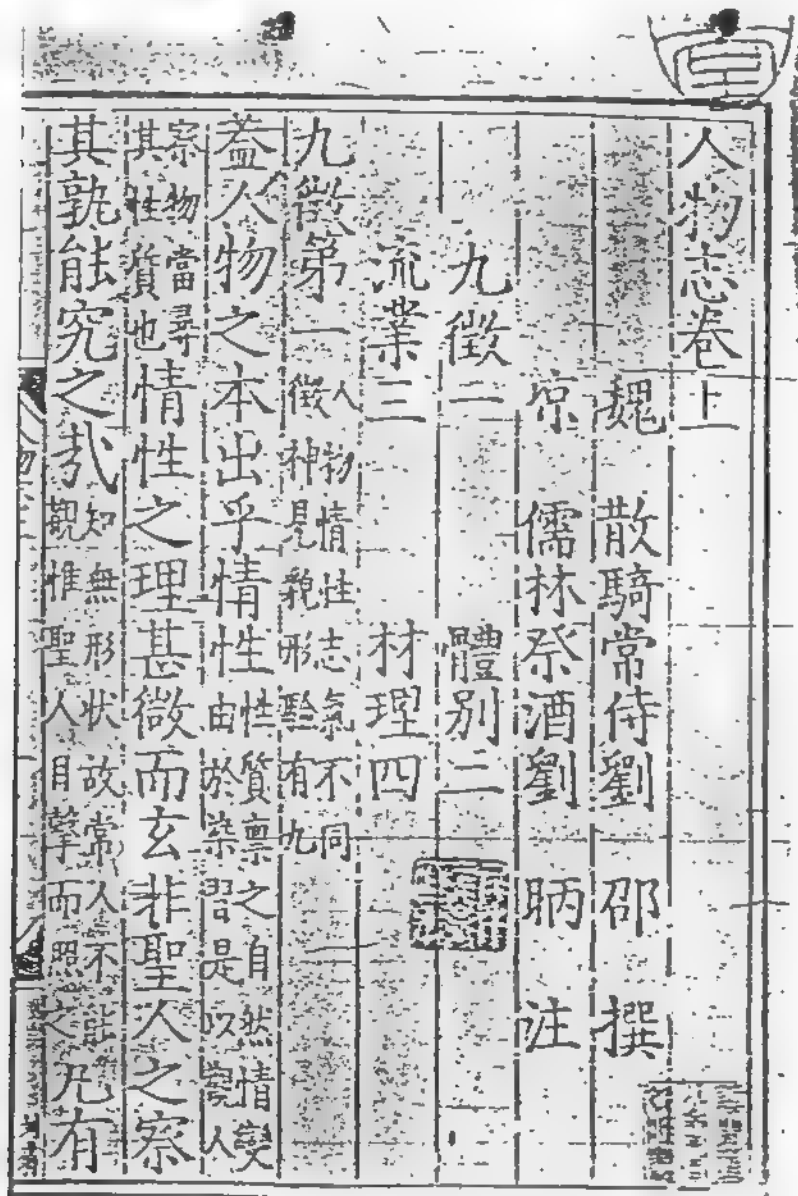 人物志卷上
魏 散騎常侍劉 邵 撰
凉 儒林祭酒劉 昞 注
九徵一 體別二
流業三 材理四
九徵第一 人物情性志氣不同
徵神見貌形驗有九
蓋人物之本出乎情性 性質禀之自然情變
由於染習是以觀人
察物當尋
其性質也 情性之理甚微而玄非聖人之察
其孰能究之哉 知無形状故常人不能
觀惟聖人目擊而照之 凡有